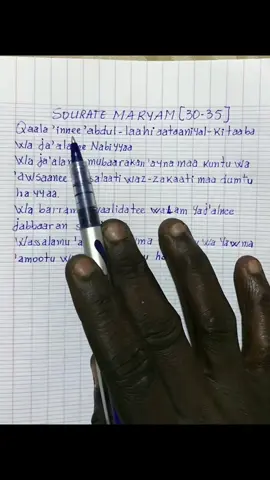 SOURATE MARYAM [30-35]
Qaala 'innee 'abdul-laahi 'aataaniyal-kitaaba
wa ja'alanee Nabiyyaa
Wa ja'alanee mubaarakan 'ayna maa kuntu wa
'awsaanee salaati waz-zakaati maa dumtu
hayyaa.
Wa barram waalidatee walam yaj'alnee
jabbaaran
Wassalamu wa yawma
'amootu